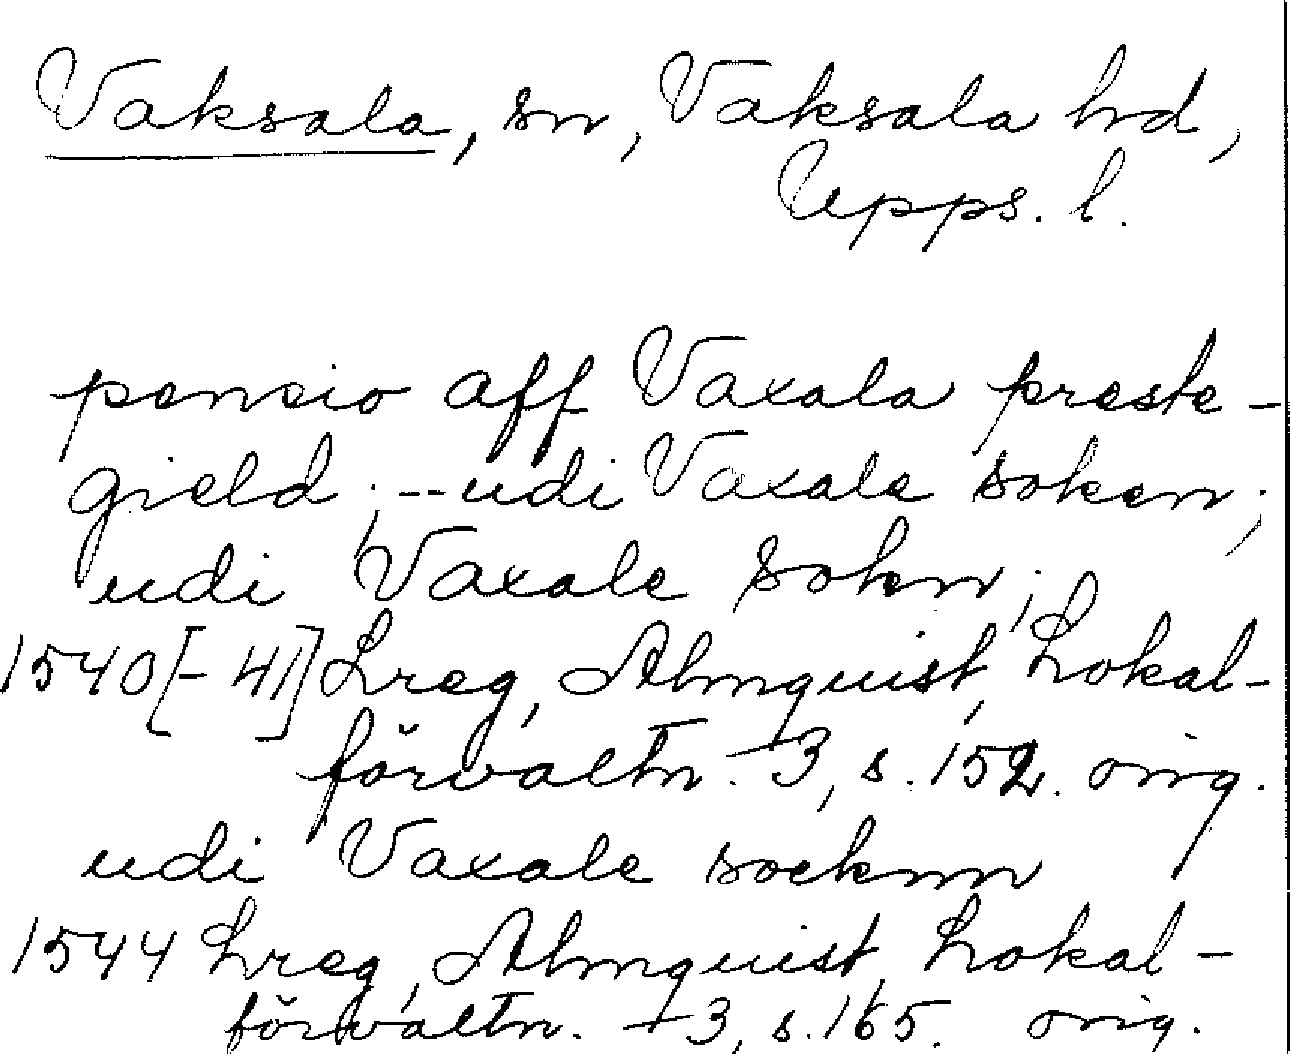 Vaksala, sn, Vaksala hd,
Upps. l.
pensio aff Vaxala preste-
gield; -- udi Vaxale soken;
udi Vaxale sokn;
1540[-41] Lreg, Almquist, Lokal-
förvaltn. 3, s. 152. orig.
udi Vaxale socknn
1544 Lreg, Almquist, Lokal-
förvaltn. 3, s. 165. orig.